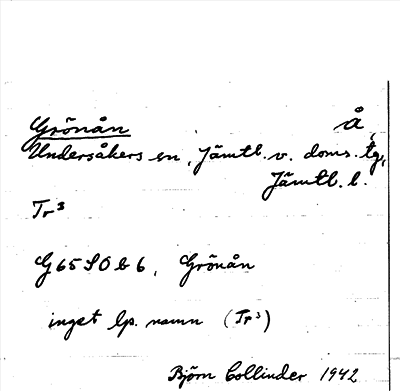 Grönån Å,
Undersåkers sn, Jämtl. v. doms. tg,
Jämtl. l.
Tr³
G65SOb6, Grönån
inget lp. namn (Tr³)
Björn Collinder 1942